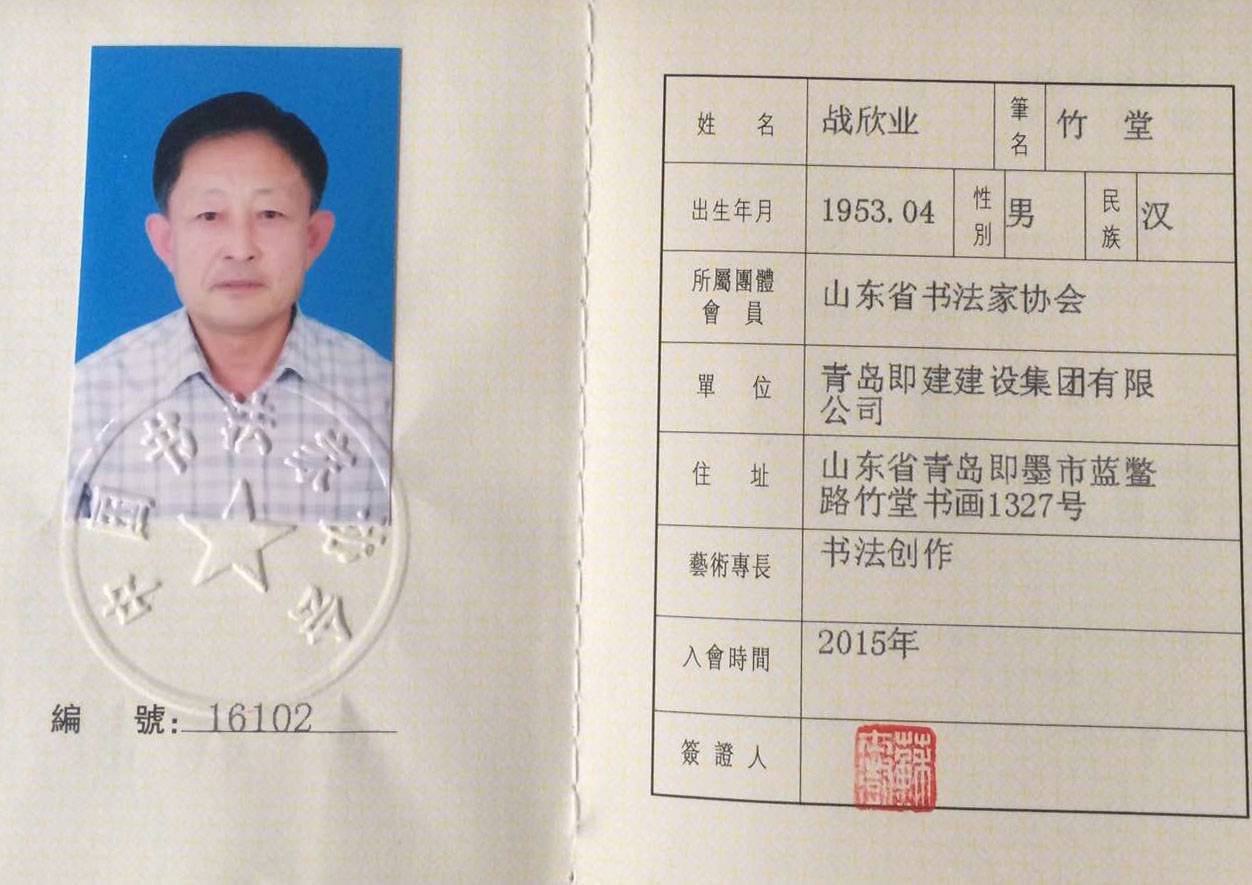 中国书法家协会
編 號: 16102
姓 名 战欣业 筆名 竹 堂
出生年月 1953.04 性別 男 民族 汉
所屬團體
會 員 山东省书法家协会
單 位 青岛即建建设集团有限
公司
住 址 山东省青岛即墨市蓝鳌
路竹堂书画1327号
藝術專長 书法创作
入會時間 2015年
簽證人